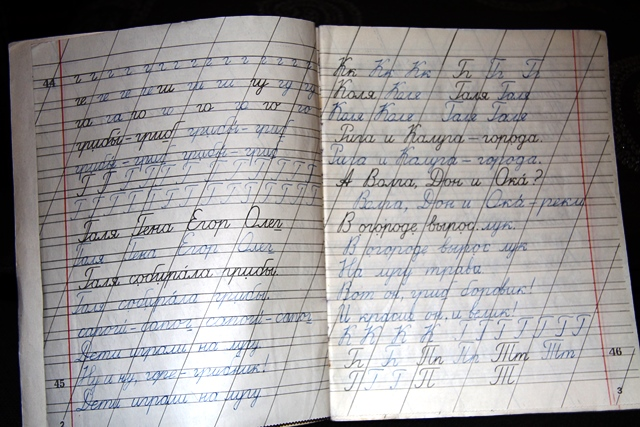 44
г г г г г г г г г г г г г г г г
ге ге ге ге ги ги ги гу гу гу
га га го го го го го го
грибы-гриб грибы-гриб
грибы-гриб грибы-гриб
Г Г Г Г Г Г Г Г Г Г Г Г Г
Г Г Г Г Г Г Г Г Г Г Г Г Г
Галя Гена Егор Олег
Галя Гена Егор Олег
Галя собира́ла грибы.
Галя собирала грибы.
сапоги-сапог сапоги-сапог
Дети играли на лугу
45
Ну и ну, горе-грибник!
Дети играли на лугу
2
Кк Кк Кк Гг Гг Гг
Коля Коля Галя Галя
Коля Коля Галя Галя
Рига и Калуга – города.
Рига и Калуга – города.
А Волга, Дон и Ока́?
Волга, Дон и Ока́ – реки
В огороде вырос лук.
В огороде вырос лук
На лугу трава.
Вот он, гриб боровик!
И красив он, и велик!
К К К К Г Г Г Г Г Г Г Г
46
Гг Гг Пп Пп Тт Тт
Г Г Г П Т
3